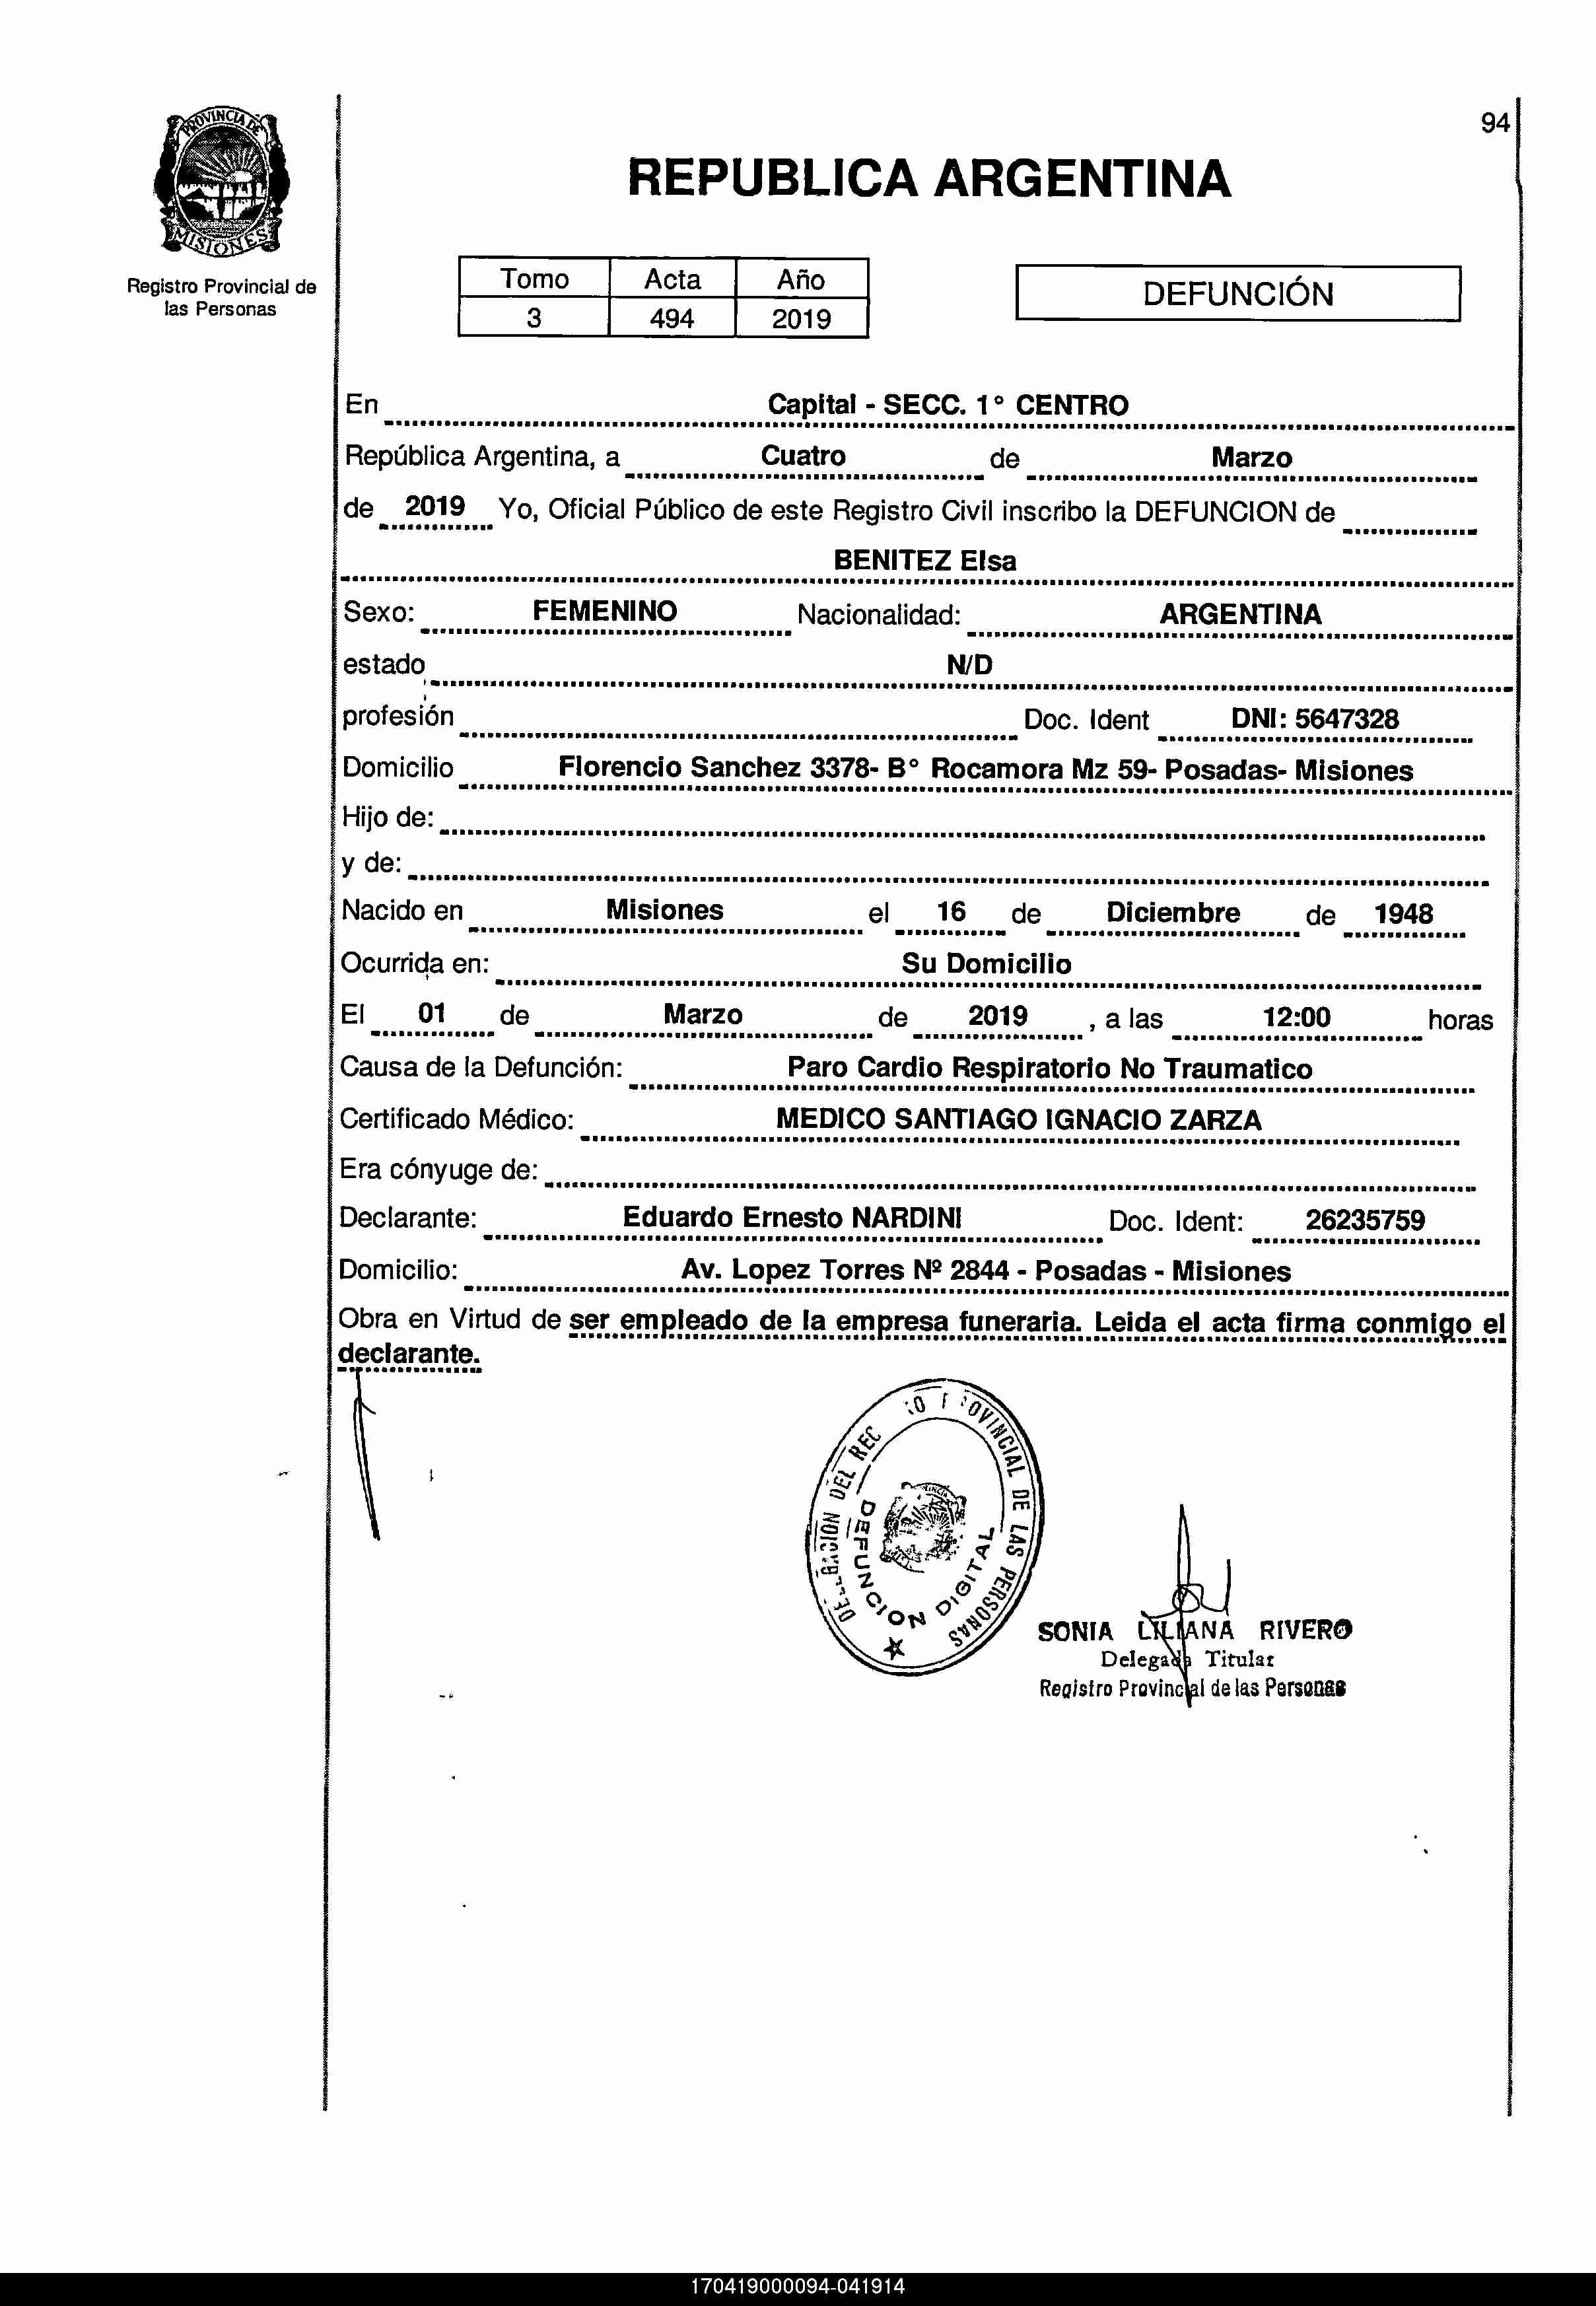 94
PROVINCIA DE
MISIONES
Registro Provincial de
las Personas
REPUBLICA ARGENTINA
Tomo Acta Año
3 494 2019
DEFUNCIÓN
En Capital - SECC. 1° CENTRO
República Argentina, a Cuatro de Marzo
de 2019 Yo, Oficial Público de este Registro Civil inscribo la DEFUNCION de
BENITEZ Elsa
Sexo: FEMENINO Nacionalidad: ARGENTINA
estado N/D
profesión Doc. Ident DNI: 5647328
Domicilio Florencio Sanchez 3378- B° Rocamora Mz 59- Posadas- Misiones
Hijo de:
y de:
Nacido en Misiones el 16 de Diciembre de 1948
Ocurrida en: Su Domicilio
El 01 de Marzo de 2019 , a las 12:00 horas
Causa de la Defunción: Paro Cardio Respiratorio No Traumatico
Certificado Médico: MEDICO SANTIAGO IGNACIO ZARZA
Era cónyuge de:
Declarante: Eduardo Ernesto NARDINI Doc. Ident: 26235759
Domicilio: Av. Lopez Torres Nº 2844 - Posadas - Misiones
Obra en Virtud de ser empleado de la empresa funeraria. Leida el acta firma conmigo el
declarante.
DEL REC OVINCIAL DE LAS PERSONAS
DEFUNCION DIGITAL
SONIA LILIANA RIVERO
Delegada Titular
Registro Provincial de las Personas
170419000094-041914